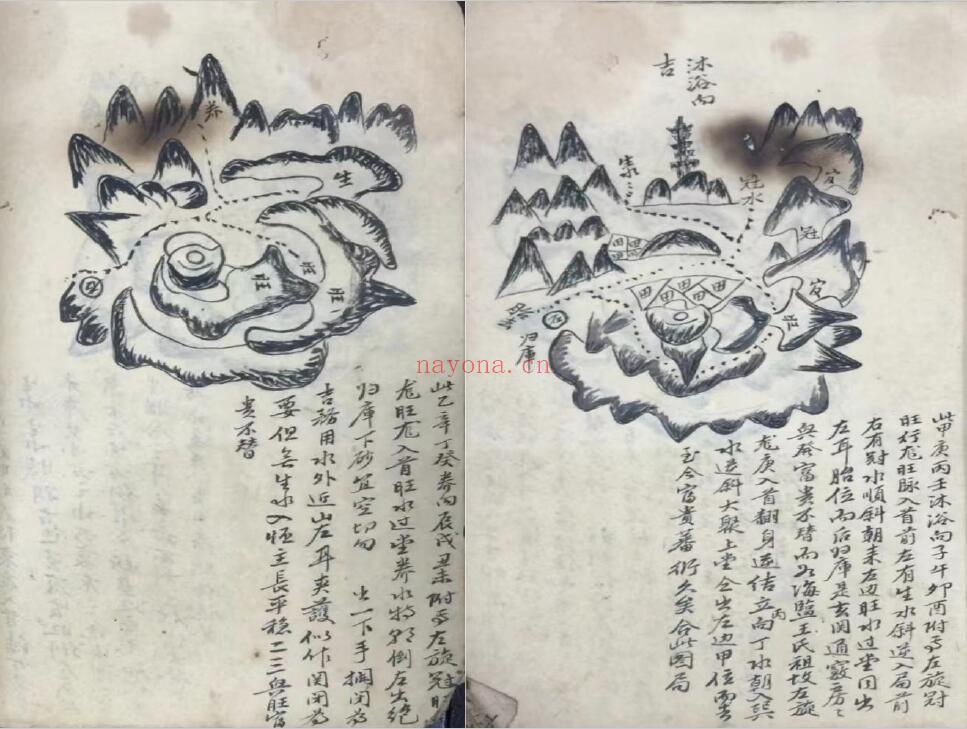 养
生
旺
旺
旺
四
此乙辛丁癸养向辰戌丑未附焉左旋冠旺
龙旺龙入首旺水过堂养水特朝倒左出绝
归库下砂宜空切勿 出一下手拦闭为
吉务用水外近山左耳夹护似作关闭为
要但無生水入怀主長平稳二三與旺富
贵不替
沐浴向
吉
生
冠水
官
冠
官
旺
田
田
田
田
田
归库
此甲庚丙壬沐浴向子午卯酉附焉左旋冠
旺行龙旺脉入首前左有生水斜逆入局前
右有對水順斜朝来左边旺水过堂同出
左耳胎位而后归庫是玄関通竅房々
與發富贵不替而如海鹽王氏祖坟左旋
龙庚入首翻身逆结立丙向丁水朝入巽
水逆斜大聚上堂仝出左边甲位而去
至今富贵蕃衍久矣合此图局
nayona.cn